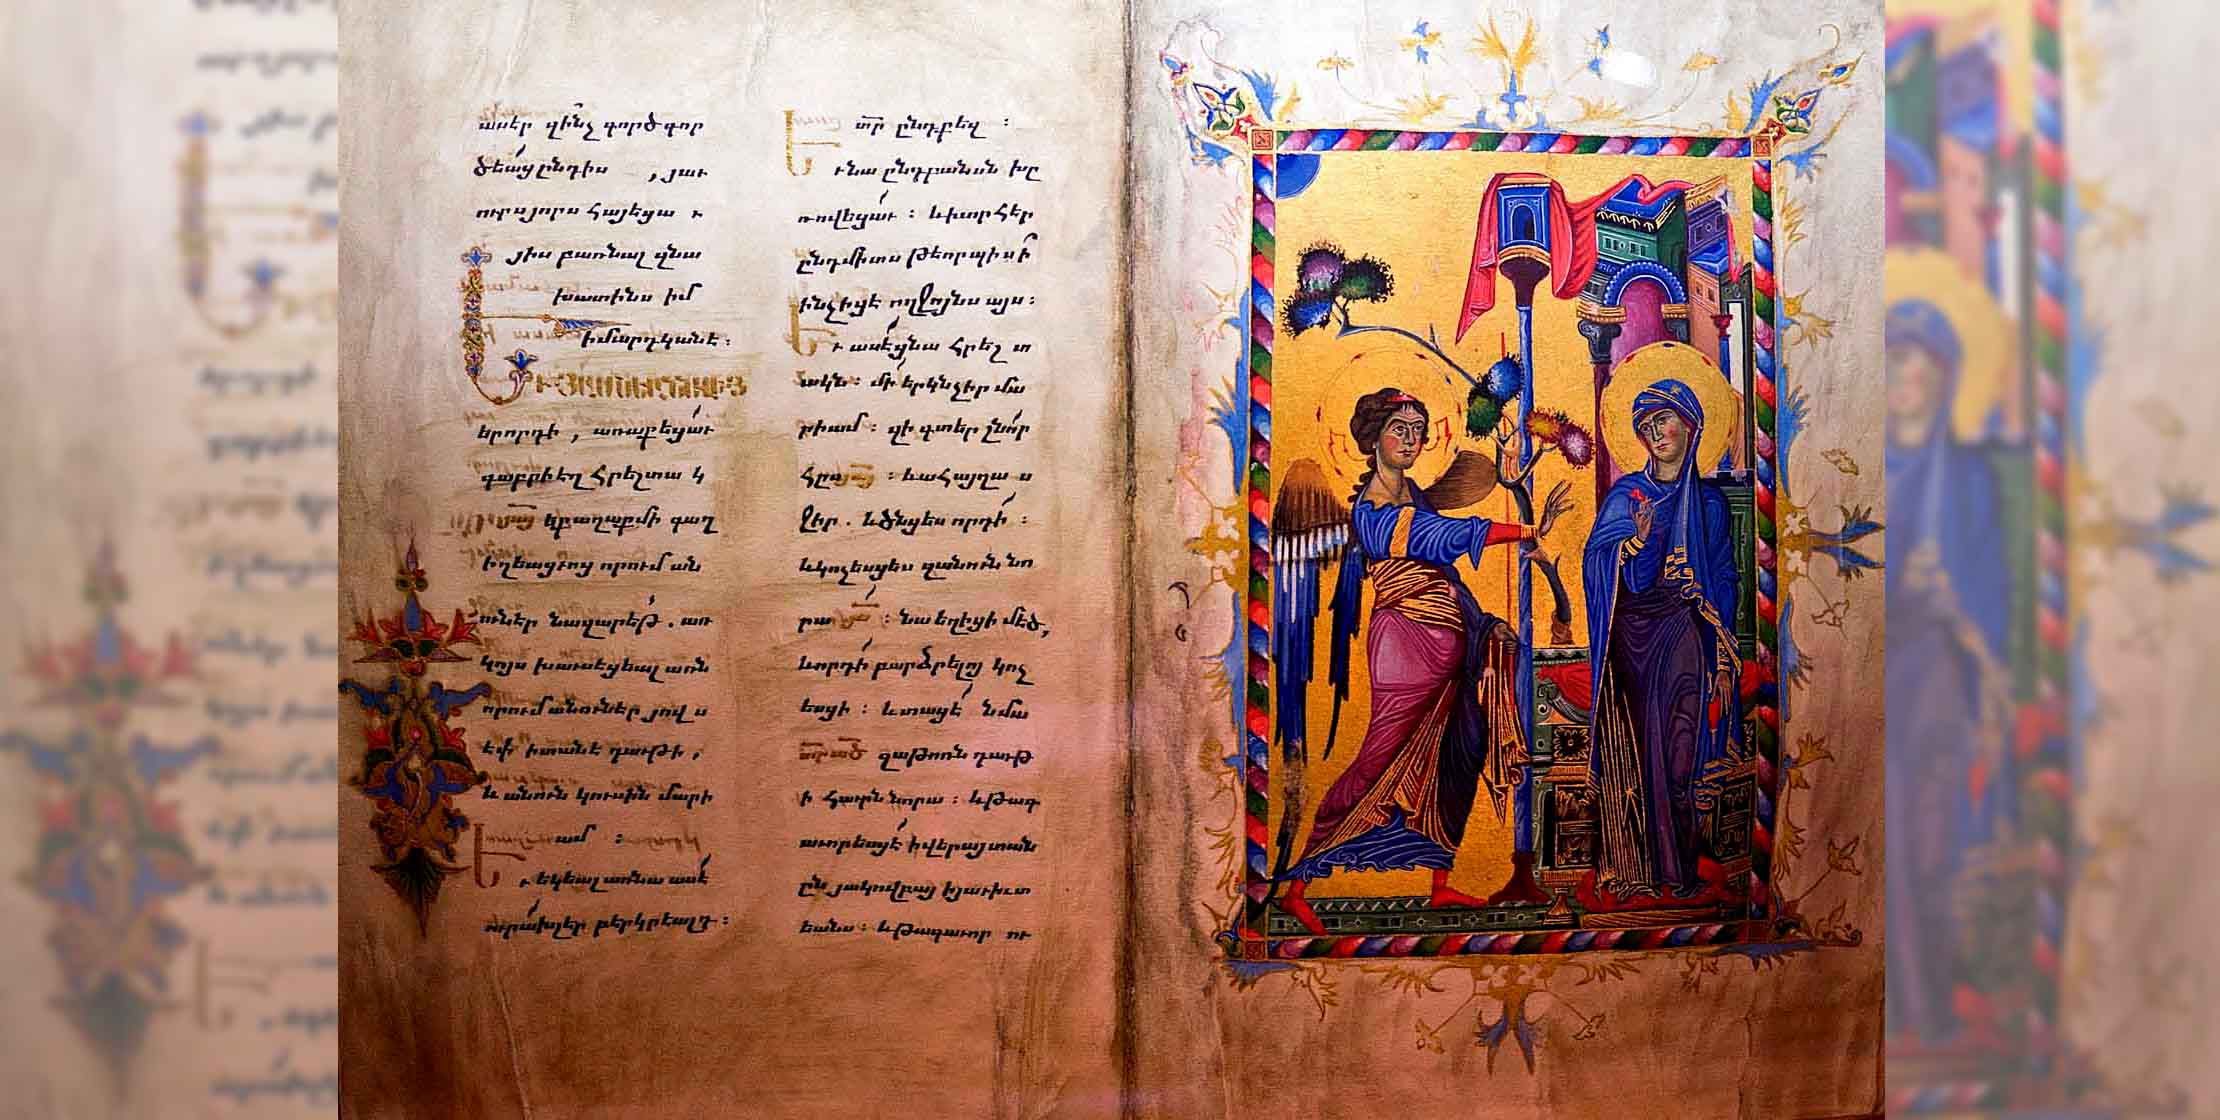 ասէր զինչ գործ գոր
ծեաց ընդիս , յաւ
ուրս յորս հայեցա ւ
յիս բառնալ զնա
խատինս իմ
իմարդկանէ :
երորդի , առաքեցաւ
գաբրիէլ հրեշտա կ
իքաղաքմի գաղ
իղեացւոց որում ան
ուներ նազարեթ . առ
կոյս խաւսեցեալ առն
որում անուներ յովս
եփ իտանէ դաւթի ,
և անուն կուսին մարի
ամ :
Եւ եկեալ առնա ասէ
ուրախլեր բերկրեալդ :
տր ընդքեզ :
Եւ նա ընդբանսն խը
ռովեցաւ : և խորհէր
ընդմիտս թէորպիսի
ինչիցէ ողջոյնս այս :
Եւ ասէ ցնա հրեշ տ
ակն : մի երկնչիր մա
րիամ : զի գտեր շնոր
հըս յայ : և ահա յղա ս
ջիր . և ծնցես որդի :
և կոչեսցես զանուն նո
րա : նա եղիցի մեծ ,
և որդի բարձրելոյ կոչ
եսցի : և տացէ նմա
տր ած զաթոռն դաւթ
ի հաւրն նորա : և թագ
աւորեսցէ իվերայ տան
ըն յակովբայ իյաւիտ
եանս : և թագաւոր ու